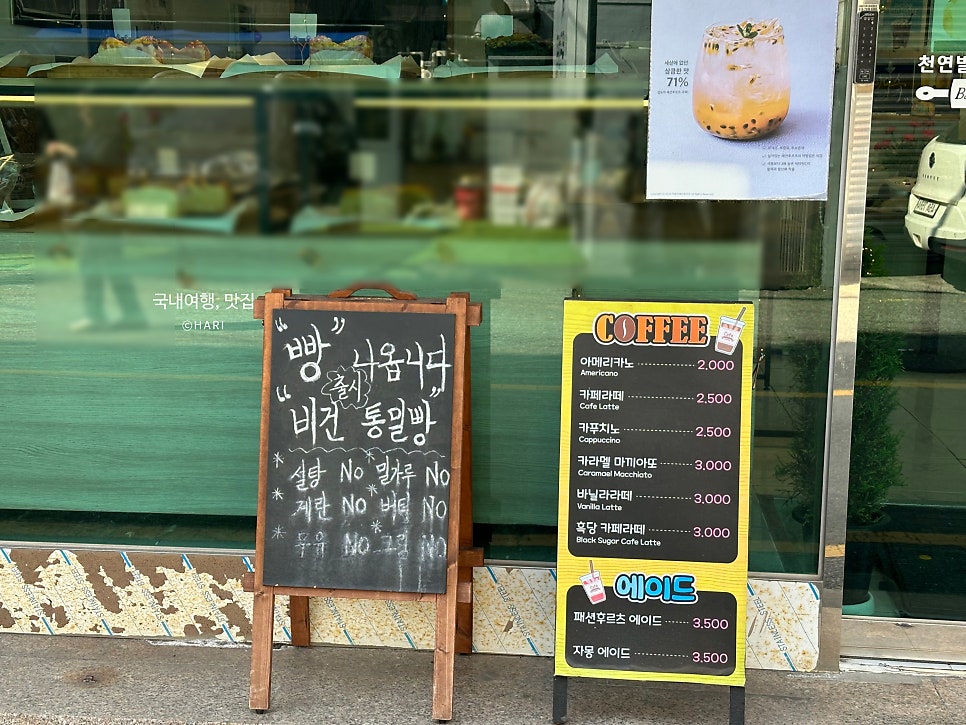 세상에 없던
상큼한 맛
71%
천연발
국내여행, 맛집
©HARI
“빵” 나옵니다
출시
“비건 통밀빵”
* 설탕 No * 밀가루 No
* 계란 No 버터 No
* 우유 No * 크림 No
COFFEE
아메리카노 2,000
Americano
카페라떼 2,500
Cafe Latte
카푸치노 2,500
Cappuccino
카라멜 마끼아또 3,000
Caramael Macchiato
바닐라라떼 3,000
Vanilla Latte
흑당 카페라떼 3,000
Black Sugar Cafe Latte
에이드
패션후르츠 에이드 3,500
자몽 에이드 3,500